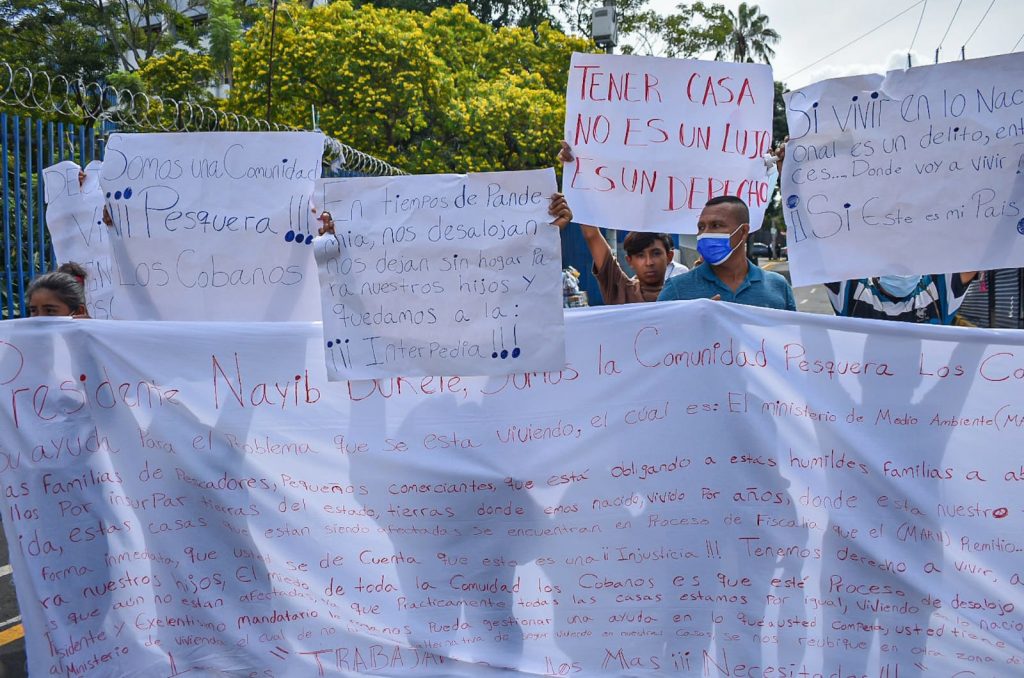 Somos una Comunidad
¡¡¡ Pesquera !!!
Los Cobanos
En tiempos de Pande
mia, nos desalojan
nos dejan sin hogar pa
ra nuestros hijos y
quedamos a la:
¡¡¡ Interpedia !!!
TENER CASA
NO ES UN LUJO
ES UN DERECHO
Si vivir en lo Naci
onal es un delito, ent
ces... Donde voy a vivir
¡Si Este es mi País
Presidente Nayib Bukele, Somos la Comunidad Pesquera Los Co
su ayuda Para el Problema que se esta viviendo, el cúal es: El ministerio de Medio Ambiente (MA
as Familias de Pescadores, Pequeños comerciantes, que está obligando a estás humildes familias a ab
llos Por insurPar tierras del estado, tierras donde emos nacido, vivido Por años, donde esta nuestro
ida, estas casas que estan siendo afectadas se encuentran en Proceso de Fiscalia que el (MARN) Remitio..
forma inmediata, que usted se de Cuenta que esto es una ¡¡ Injusticia !!! Tenemos derecho a vivir, a
ra nuestros hijos, El miedo de toda la Comuidad los Cobanos es que esté Proceso de desalojo
s que aún no estan afectadas, ya que Practicamente todas las casas estamos Por igual, viviendo en lo nacio
sidente y Exelentivmo mandatario le Pueda gestionar una ayuda en lo que a usted Competa, usted
al Ministerio de vivienda, el cual de no alternativa de seguir viviendo en nuestras Casas, se nos reubique en otra zona de
" TRABAJA los Mas ¡¡¡ Necesitados !!!